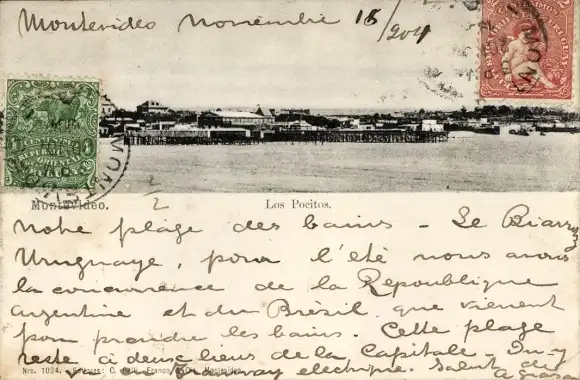 Montevideo Novembre 18/904
MONT
Montevideo.
Los Pocitos.
Notre plage des bains - Le Biarritz
Uruguaye, pour l'été nous avons
la concurrence de la Republique
argentine et du Brèsil que vienent
pour prendre les bains. Cette plage
reste a deux lieus de la Capitale -
electrique. Salut
Nro. 1024.
Montevideo.